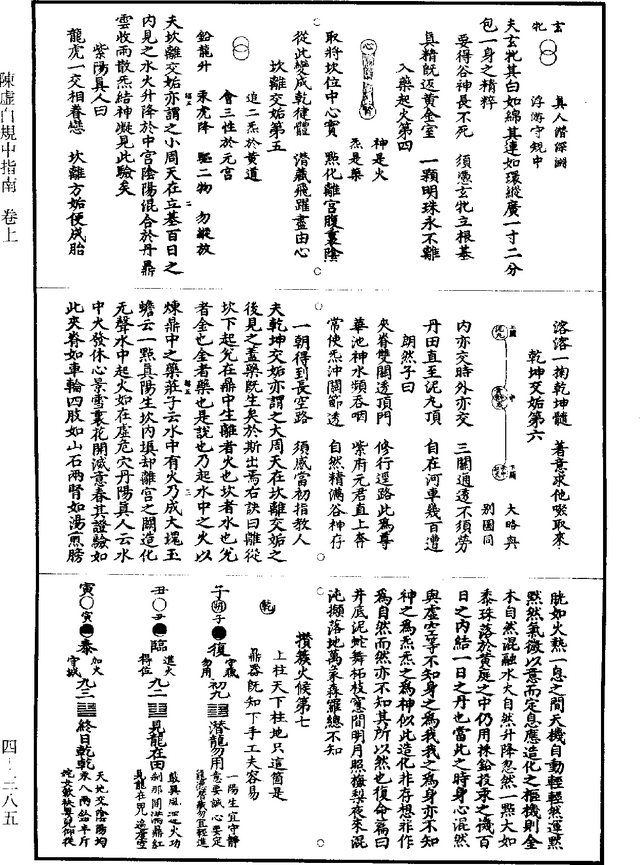 陳虛白規中指南　卷上
四—三八五
玄牝　真人潛深淵　浮游守規中
夫玄牝其白如綿其連如環縱廣一寸二分
包一身之精粹
要得谷神長不死　須憑玄牝立根基
真精既返黃金室　一顆明珠永不離
入藥起火第四
心　腎　神是火　炁是藥
取將坎位中心實　點化離宮腹裏陰
從此變成乾健體　潛藏飛躍盡由心
坎離交姤第五
追二炁於黃道
會三性於元宮
鉛龍升　汞虎降　驅二物　勿縱放
夫坎離交姤亦謂之小周天在立基百日之
內見之水火升降於中宮陰陽混合於丹鼎
雲收雨散炁結神凝見此驗矣
紫陽真人曰
龍虎一交相眷戀　坎離方姤便成胎
溶溶一掬乾坤髓　著意求他啜取來
乾坤交姤第六
大略與
別圖同
內亦交時外亦交　三關通透不須勞
丹田直至泥丸頂　自在河車幾百遭
朗然子曰
夾脊雙關透頂門　修行逕路此為尊
華池神水頻吞咽　紫府元君直上奔
常使炁沖關節透　自然精滿谷神存
一朝得到長空路　須感當初指教人
夫乾坤交姤亦謂之大周天在坎離交姤之
後見之蓋藥既生矣於斯出焉右訣曰離從
坎下起兊在鼎中生離者火也坎者水也兊
者金也金者藥也是說也乃起水中之火以
煉鼎中之藥莊子云水中有火乃成大塊玉
蟾云一點真陽生坎內填却離宮之闕造化
无聲水中起火如在虛危穴丹陽真人云水
中火發休心景雪裏花開滅意春其證驗如
此夾脊如車輪四肢如山石兩腎如湯煎膀
胱如火熱一息之間天機自動輕輕然運默
默然氣微以意而定息應造化之樞機則金
木自然混融水火自然升降忽然一點大如
黍珠落於黃庭之中仍用採鉛投汞之機百
日之內結一日之丹也當此之時身心混然
與虛空等不知身之為我我之為身亦不知
神之為炁炁之為神似此造化非存想非作
為自然而然亦不知其所以然也復命篇曰
井底泥蛇舞柘枝窻間明月照梅梨夜來混
沌攧落地萬象森羅總不知
攢簇火候第七
乾　上柱天下柱地只這箇是
鼎器既知下手工夫容易
子　朔　子　復　守城　勿用　初九　潛龍勿用　一陽生宜守靜
丑　臨　進火　得位　九二　見龍在田
寅　寅　泰　加火　守城　九三　終日乾乾　天地交陰陽均